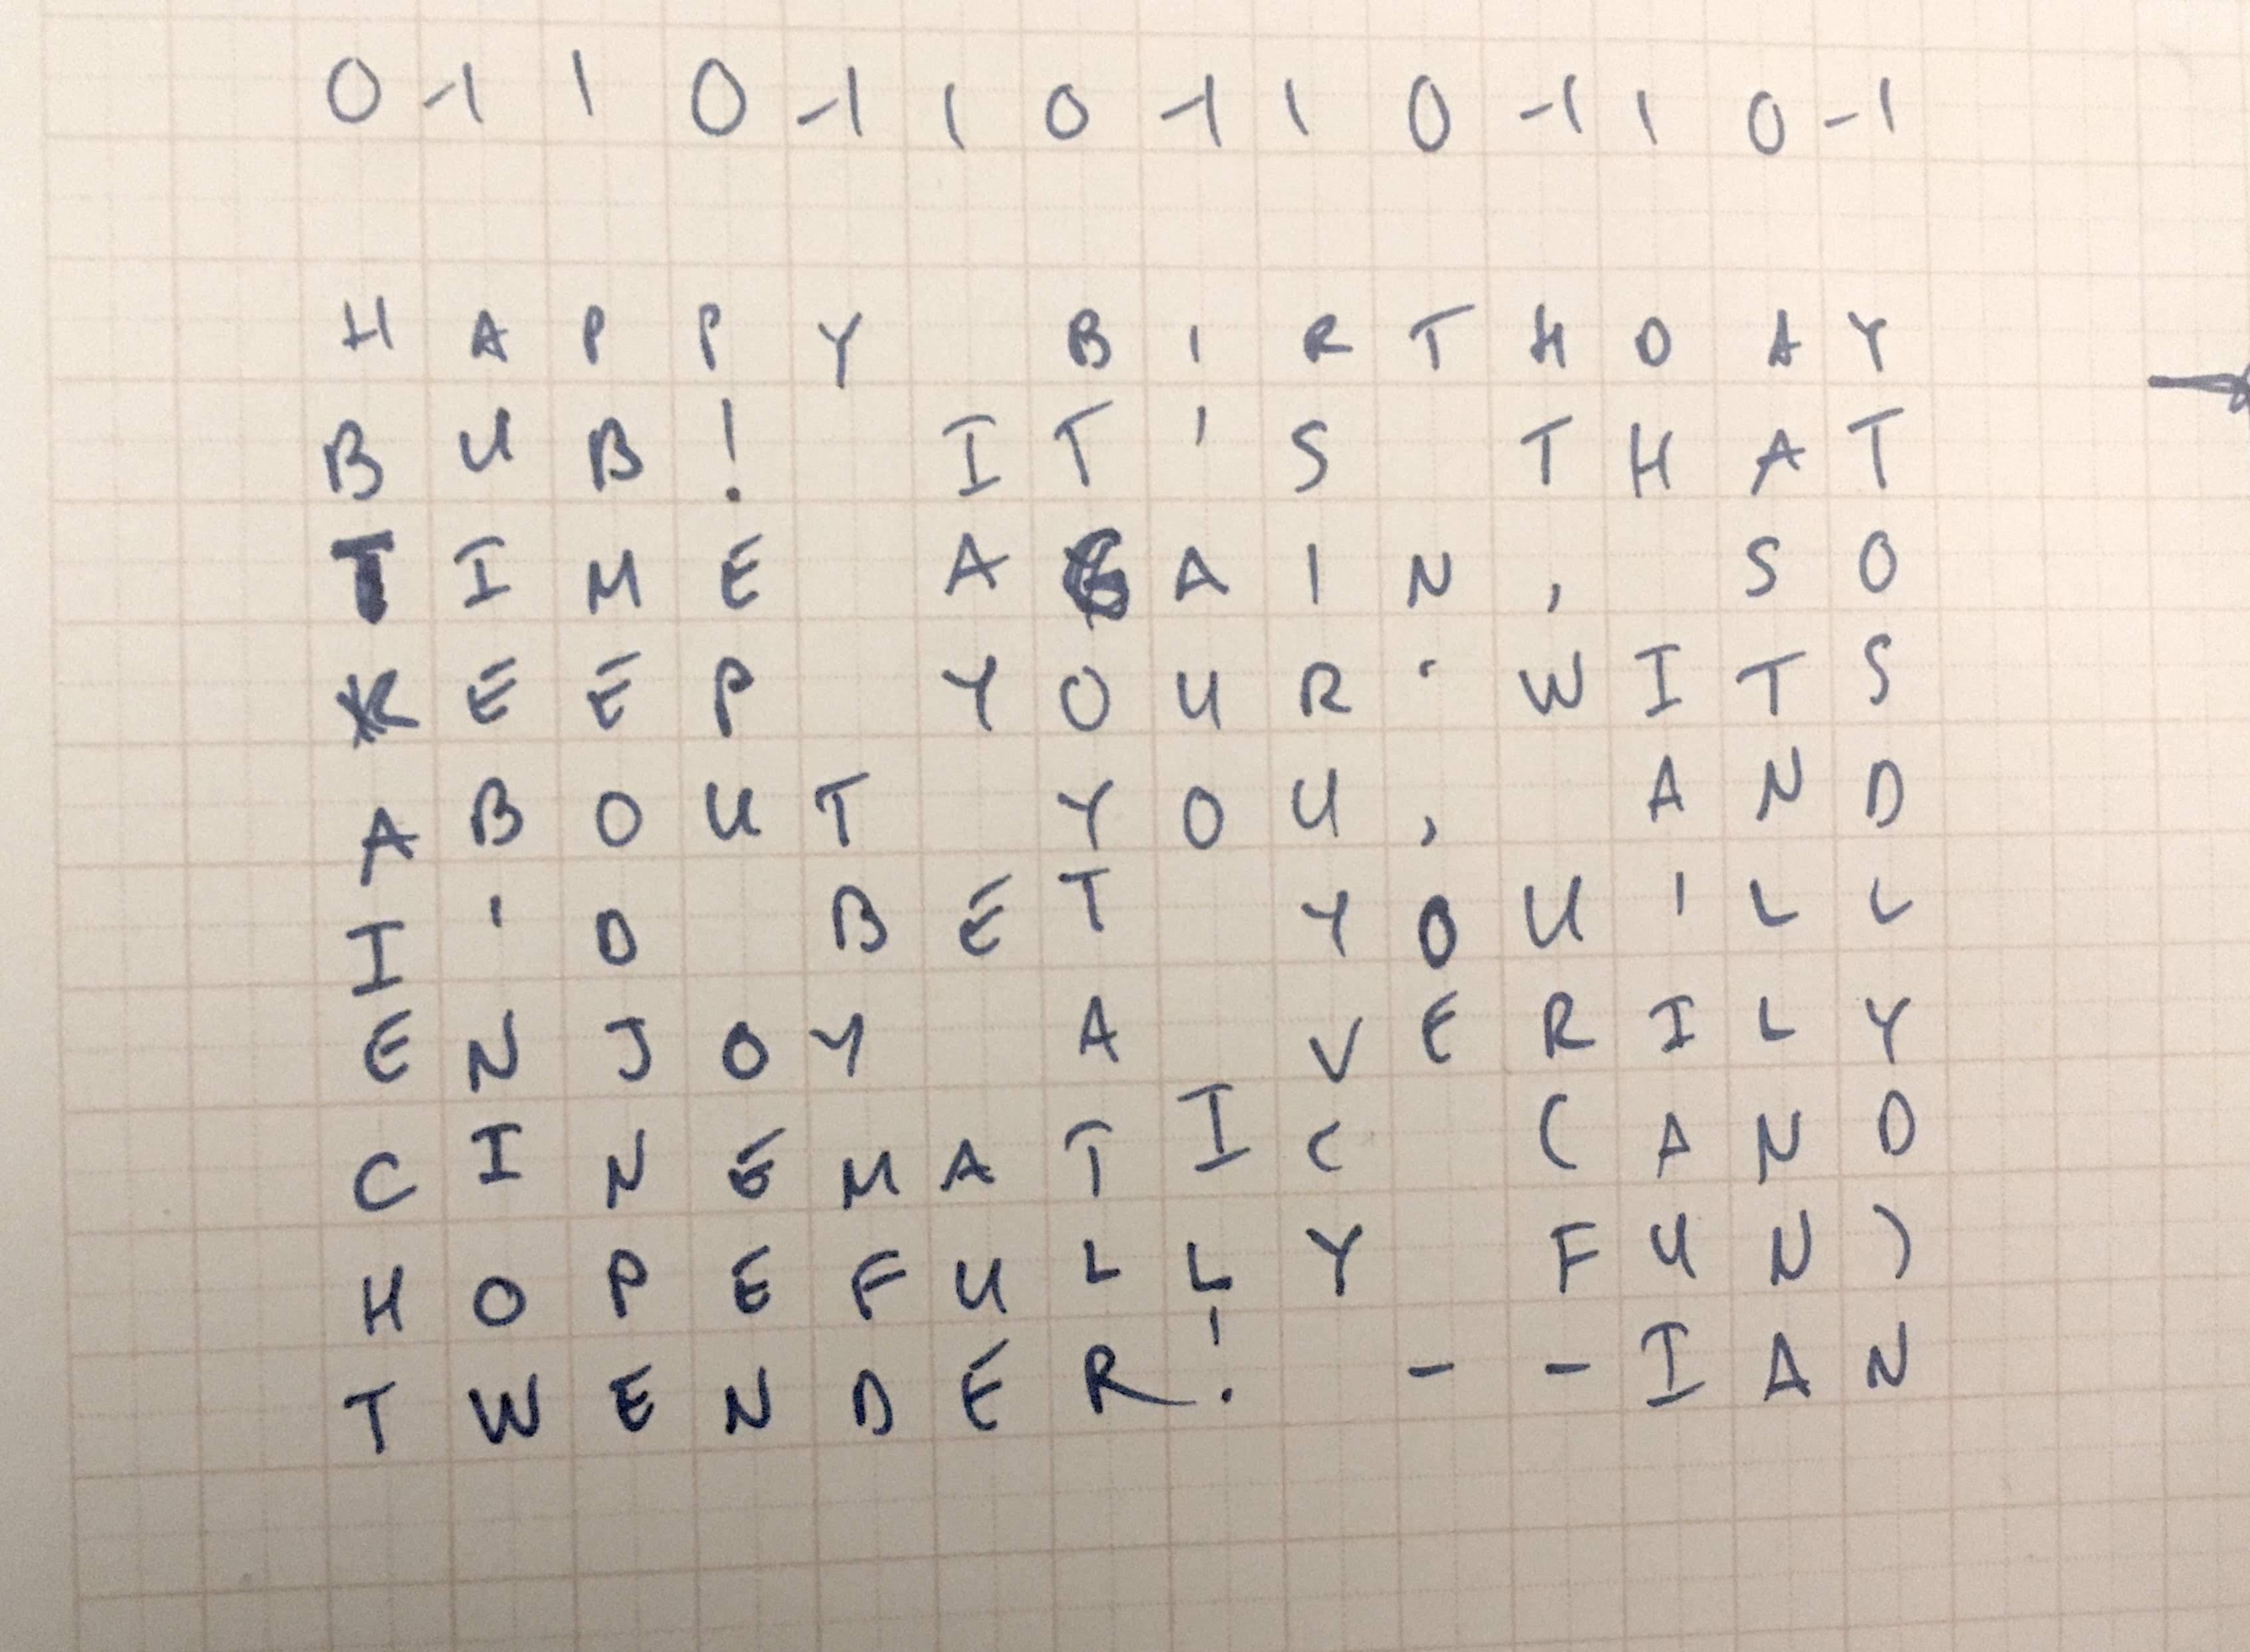 0 -1 1 0 -1 1 0 -1 1 0 -1 1 0 -1
HAPPY BIRTHDAY
BUB! IT'S THAT
TIME AGAIN, SO
KEEP YOUR WITS
ABOUT YOU, AND
I'D BET YOU'LL
ENJOY A VERILY
CINEMATIC (AND
HOPEFULLY FUN)
TWENDER! --IAN